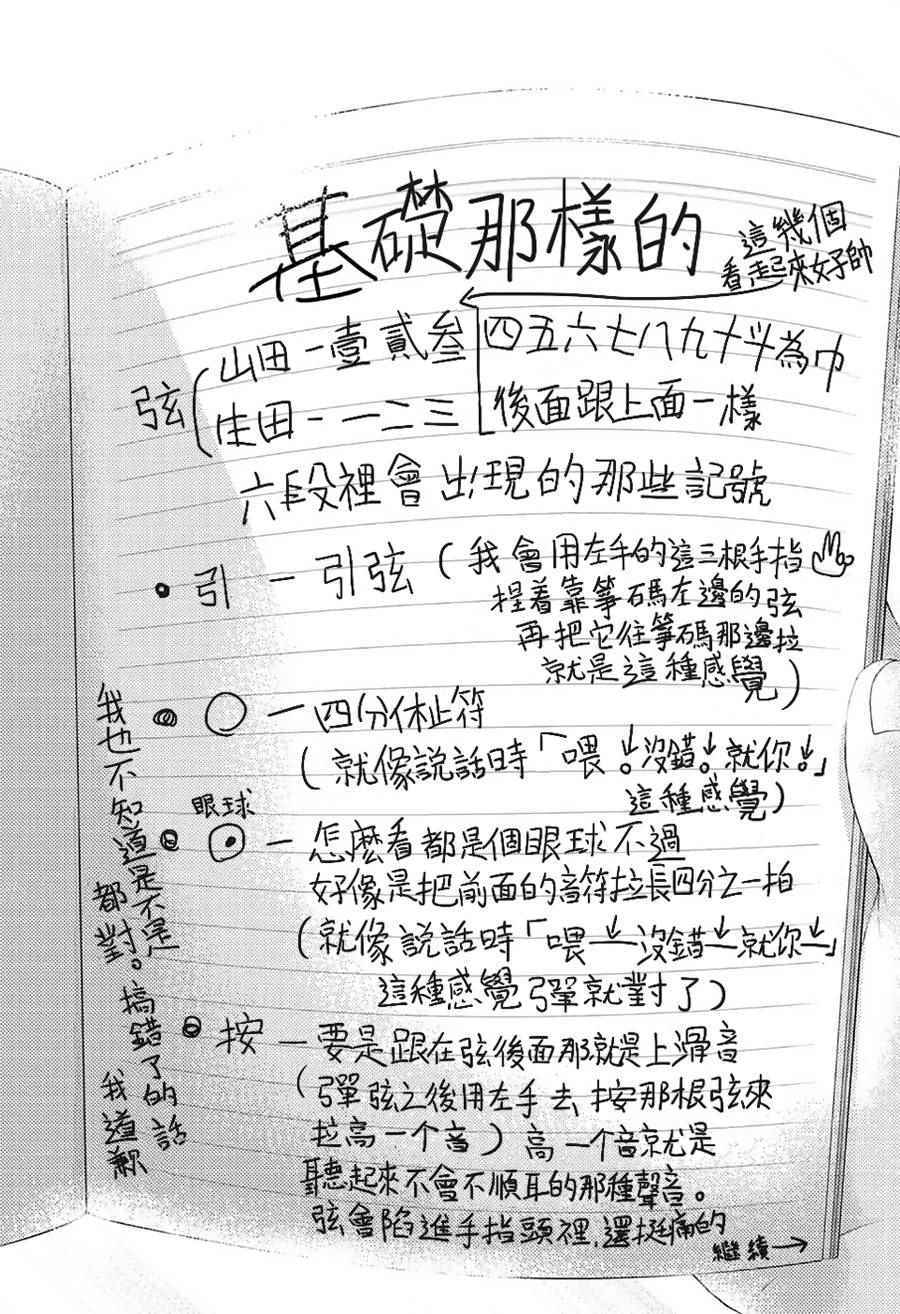 基礎那樣的
這幾個
看起來好帥
弦
山田－壹貳參 四五六七八九十斗為巾
生田－一二三 後面跟上面一樣
六段裡會出現的那些記號
• 引 － 引弦（我會用左手的這三根手指
捏着靠箏碼左邊的弦
再把它往箏碼那邊拉
就是這種感覺）
○ － 四分休止符
（就像說話時「喂↓。沒錯↓。就你↓。」
這種感覺）
眼球
⊙ － 怎麼看都是個眼球不過
好像是把前面的音符拉長四分之一拍
（就像說話時「喂－沒錯－就你－」
這種感覺彈就對了）
• 按 － 要是跟在弦後面那就是上滑音
（彈弦之後用左手去按那根弦來
拉高一个音）高一个音就是
聽起來不會不順耳的那種聲音。
弦會陷進手指頭裡，還挺痛的
繼續→
我也不知道是不是
都對。搞錯了的話
我道歉